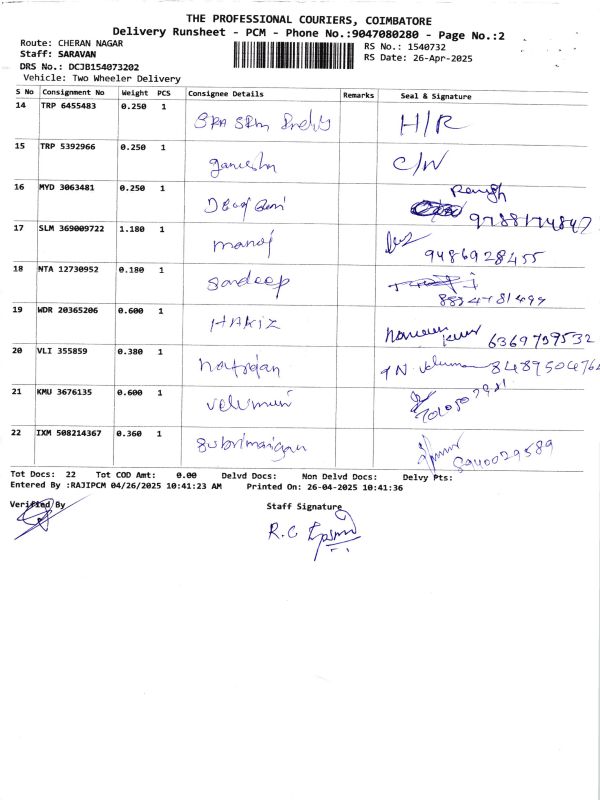 THE PROFESSIONAL COURIERS, COIMBATORE
Delivery Runsheet - PCM - Phone No.:9047080280 - Page No.:2
Route: CHERAN NAGAR
RS No.: 1540732
Staff: SARAVAN
RS Date: 26-Apr-2025
DRS No.: DCJB154073202
Vehicle: Two Wheeler Delivery
S No Consignment No Weight PCS Consignee Details Remarks Seal & Signature
14 TRP 6455483 0.250 1 H/R
15 TRP 5392966 0.250 1 ganesha C/W
16 MYD 3063481 0.250 1
17 SLM 369009722 1.180 1 manoj 9486928455
18 NTA 12730952 0.180 1 Sandeep
19 WDR 20365206 0.600 1 HAKIZ 6369759532
20 VLI 355859 0.380 1 natrajan
21 KMU 3676135 0.600 1 velumani
22 IXM 508214367 0.360 1
Tot Docs: 22 Tot COD Amt: 0.00 Delvd Docs: Non Delvd Docs: Delvy Pts:
Entered By :RAJIPCM 04/26/2025 10:41:23 AM Printed On: 26-04-2025 10:41:36
Verified By Staff Signature
R.C